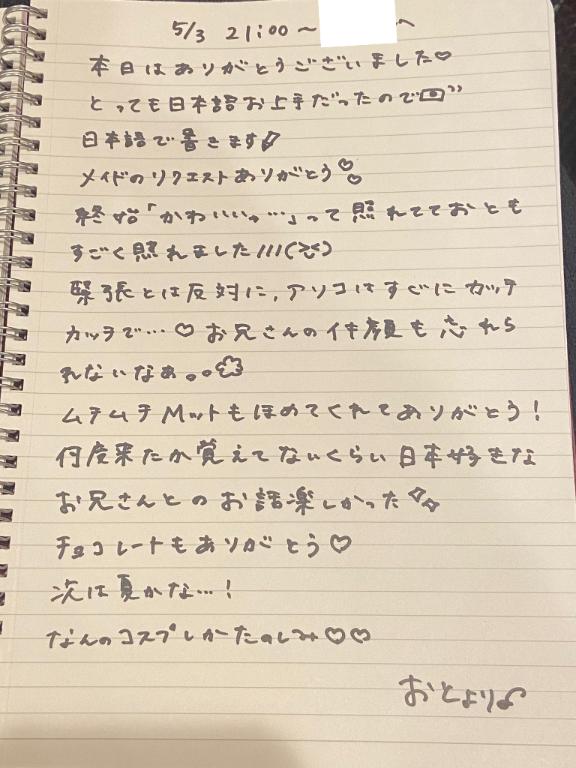 5/3 21:00〜 へ
本日はありがとうございました♡
とっても日本語お上手だったので
日本語で書きます
メイドのリクエストありがとう♡
終始「かわいいっ…」って照れてておとも
すごく照れました///(><)
緊張とは反対に、アソコはすぐにカッチ
カッチで…♡ お兄さんのイキ顔も忘れら
れないなぁ。。
ムチムチMットもほめてくれてありがとう！
何度来たか覚えてないくらい日本好きな
お兄さんとのお話楽しかった
チョコレートもありがとう♡
次は夏かな…！
なんのコスプレかたのしみ♡♡
おとより♪